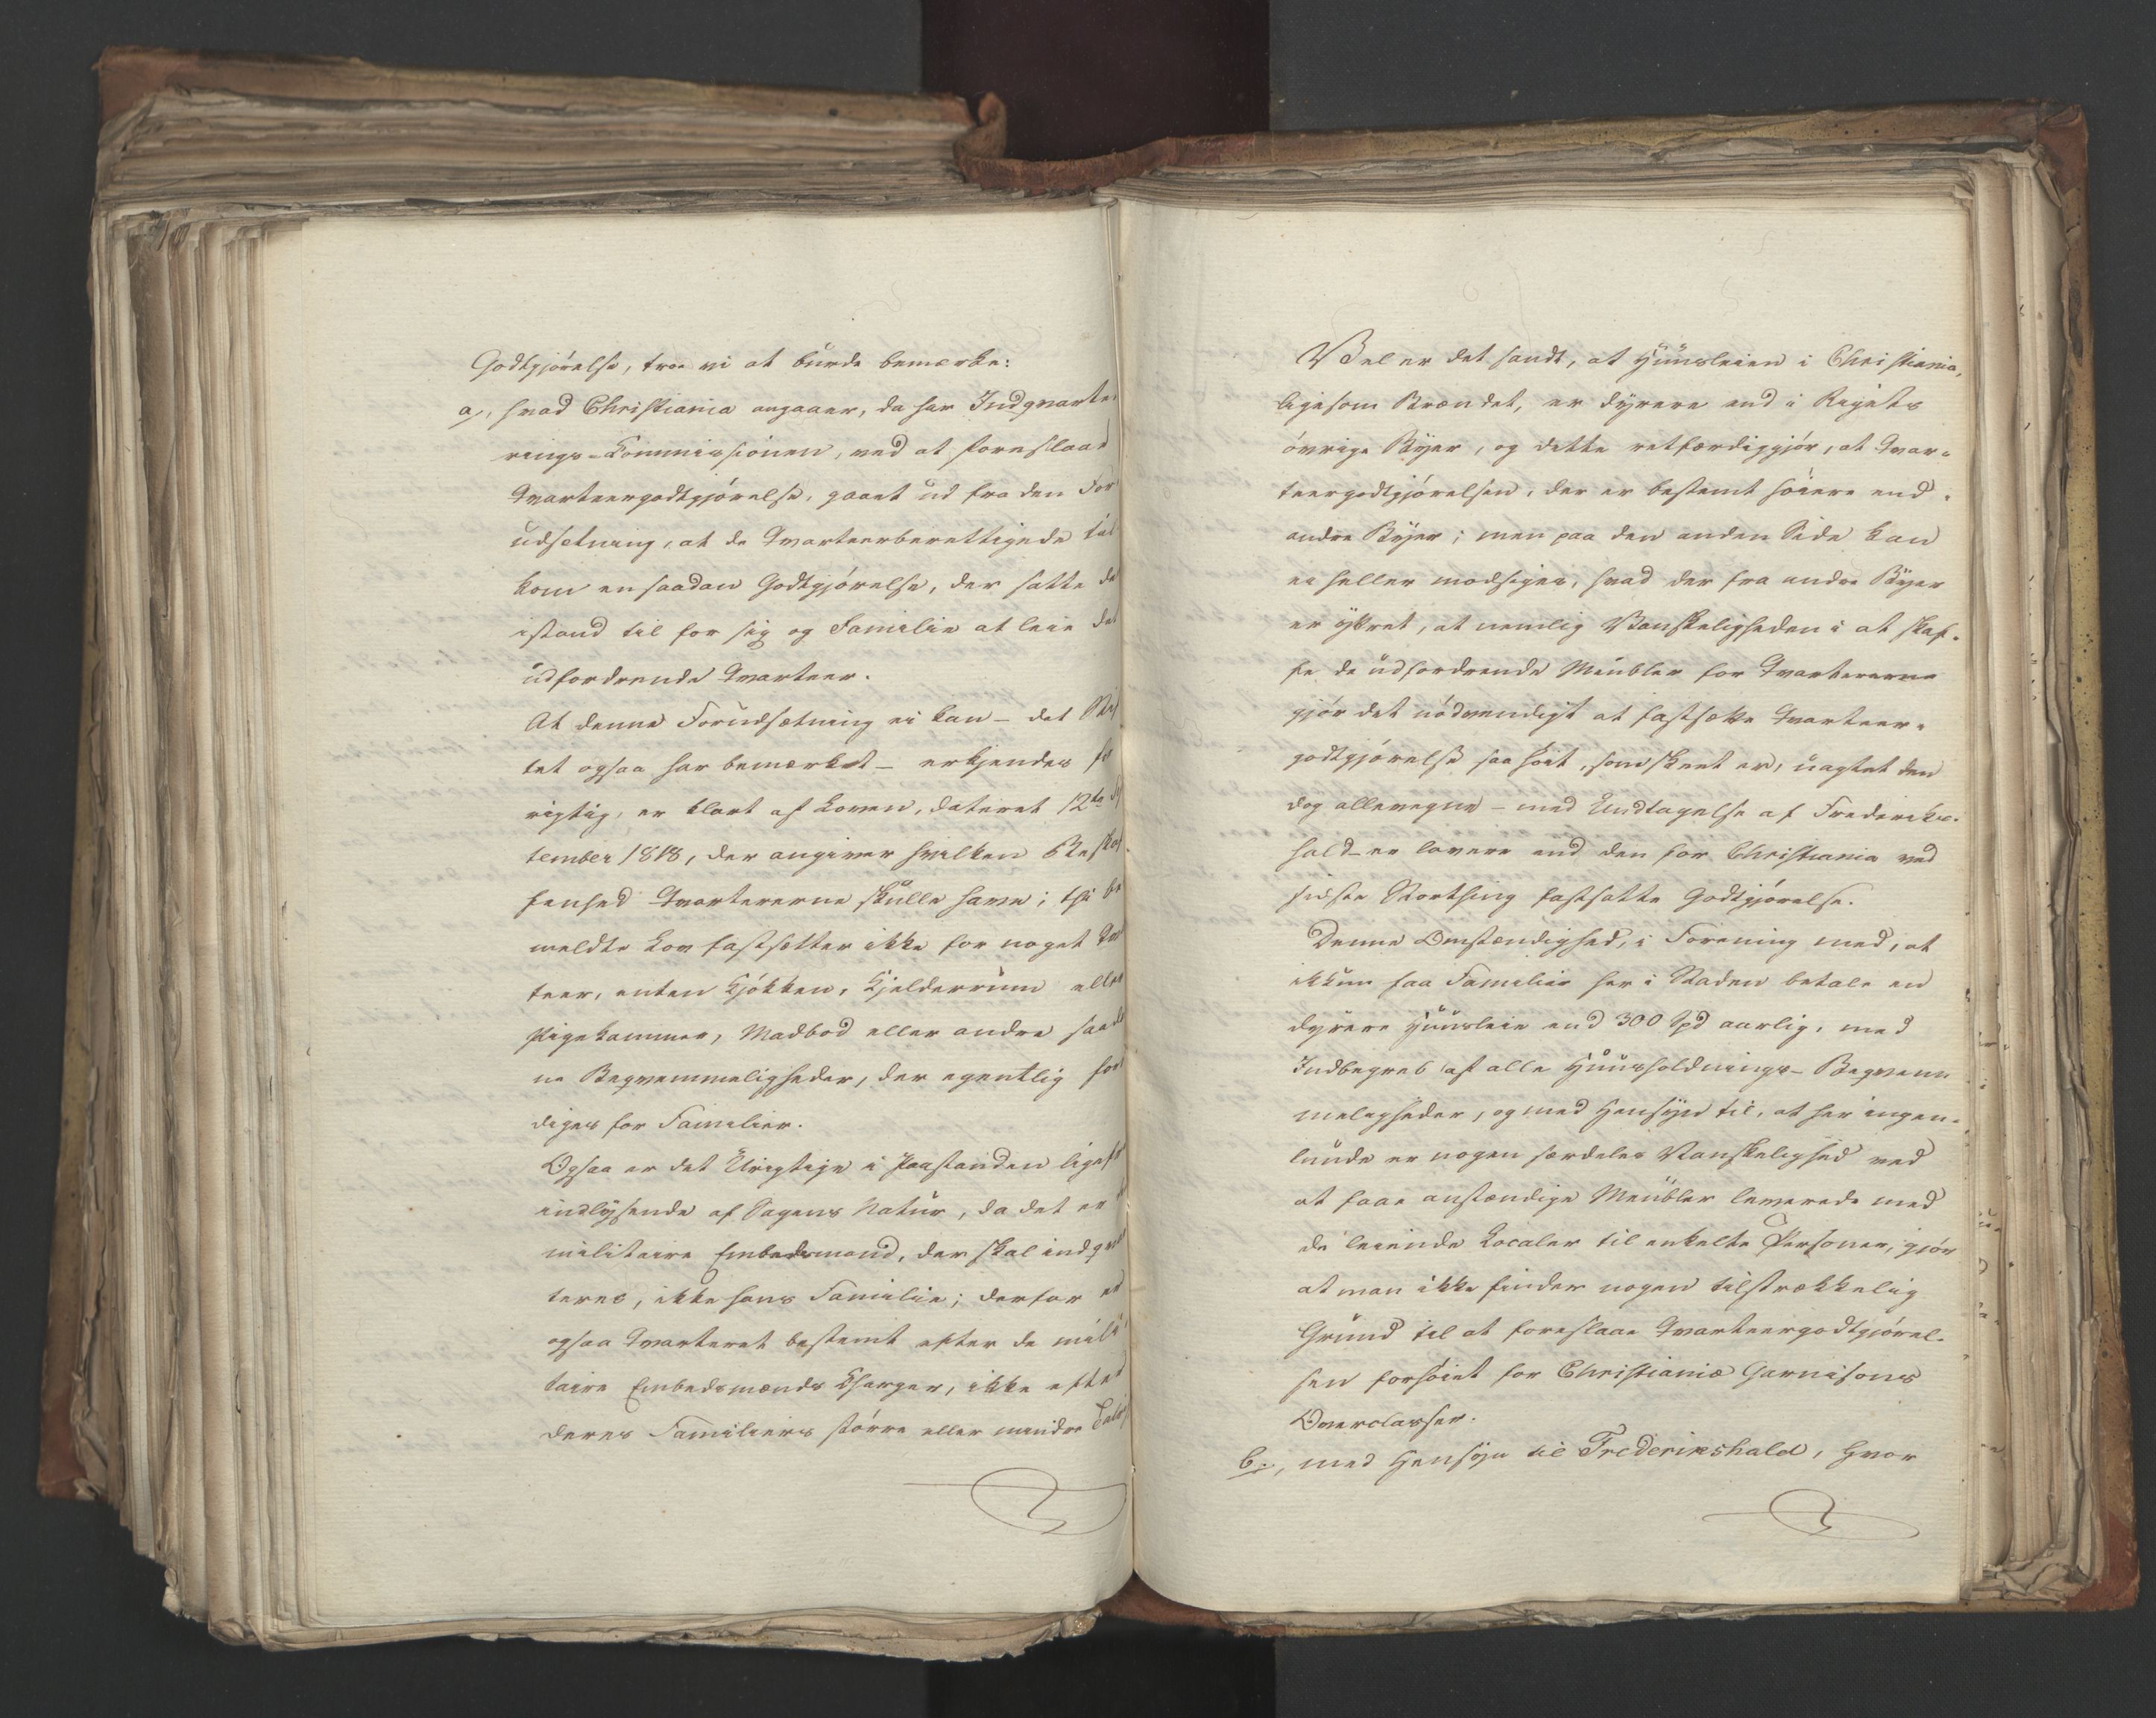 Godtgjörelse, troe vi at burde bemærke:
a, hvad Christiania angaaer, da har Indqvarte-
rings-Commissionen, ved at foreslaae
Qvarteergodtgjörelse, gaaet ud fra den For
udsetning, at de Qvarteerberettigede til
kom en saadan Godtgjörelse, der satte de
istand til for sig og Familie at leie det
udfordrende Qvarteer.
At denne Forudsætning ei kan – det
tet ogsaa har bemærket – erkjendes for
rigtig, er klart af Loven, dateret 12te Sep
tember 1818, der angiver hvilken Beskaf
fenhed Qvartererne skulle have; thi be
meldte Lov fastsætter ikke for noget Qvar
teer, enten Kjökken, Kjelderrum eller
Pigekammer, Madbod eller andre saada
ne Beqvemmeligheder, der egentlig for
diges for Familier.
Ogsaa er det Urigtige i Paastanden ligefr
indlysende af Sagens Natur, da det er
militaire Embedsmand, der skal indqvar
teres, ikke hans Familie; derfor er
ogsaa Qvarteret bestemt efter de mili
taire Embedsmænds Charger, ikke efter
deres Familiers större eller mindre Talrig
Vel er det sandt, at Huusleien i Christiania,
ligesom Brændet, er dyrere end i Rigets
övrige Byer, og dette retfærdiggjör, at Qvar-
teergodtgjörelsen, der er bestemt höiere end i
andre Byer; men paa den anden Side kan
ei heller modsiges, hvad der fra andre Byer
er yttret, at nemlig Vanskeligheden i at skaf-
fe de udfordrende Meubler for Qvartererne
gjör det nödvendigt at fastsætte Qvarteer-
godtgjörelse saa höit, som skeet er, uagtet den
dog allevegne – med Undtagelse af Frederiks-
hald – er lavere end den for Christiania ved
sidste Storthing fastsatte Godtgjörelse.
Denne Omstændighed, i Forening med, at
ikkun faa Familier her i Staden betale en
dyrere Huusleie end 300 Spd aarlig, med
Indbegreb af alle Huusholdnings-Beqvem
meligheder, og med Hensyn til, at her ingen-
lunde er nogen særdeles Vanskelighed ved
at faae anstændige Meubler leverede med
de leiende Localer til enkelte Personer, gjör
at man ikke finder nogen tilstrækkelig
Grund til at foreslaae Qvarteergodtgjörel-
sen forhöiet for Christianiæ Garnisons
Overclasser.
b., med Hensyn til Frederikshald, hvor